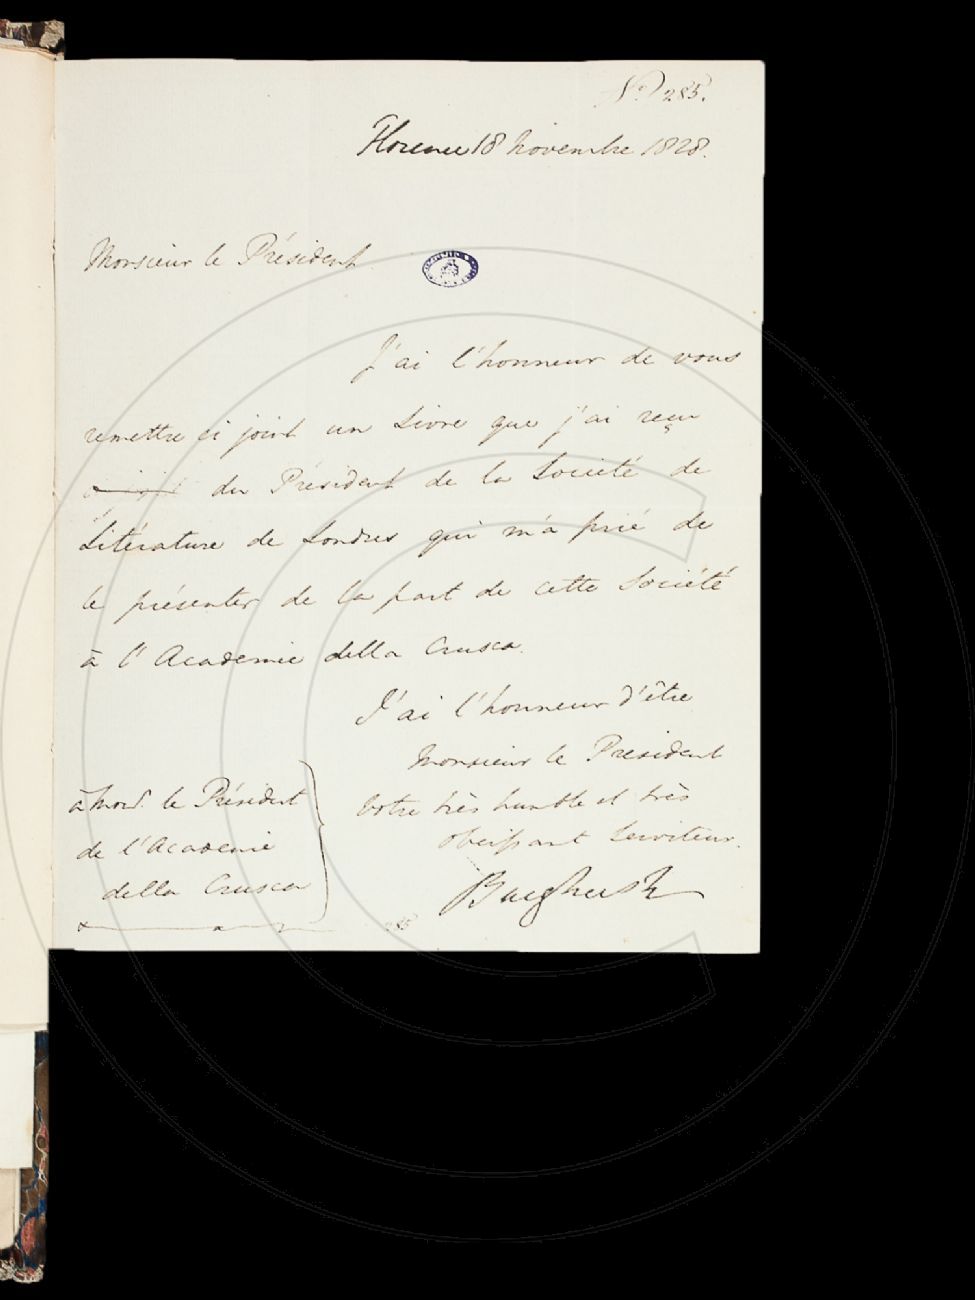 N.º 285.
Florence 18 Novembre 1828.
Monsieur le Président
J'ai l'honneur de vous
remettre ci joint un Livre que j'ai reçu
du Président de la Societé de
Litérature de Londres qui m'a prié de
le présenter de la part de cette Société
à l'Academie della Crusca.
J'ai l'honneur d'être
Monsieur le President
Votre très humble et très
obeissant Serviteur.
Burghersh
à Monsr. le Président
de l'Academie
della Crusca
285